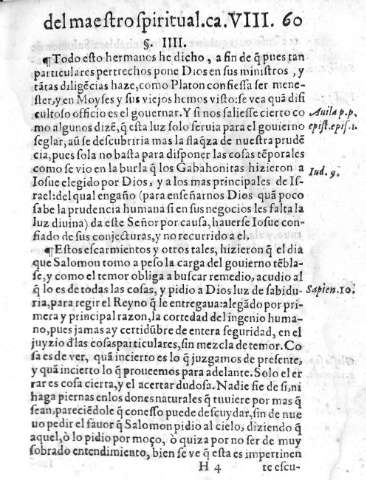 del maestro spiritual.ca.VIII. 60
§. IIII.
¶Todo esto hermanos he dicho, a fin de q̃ pues tan
particulares pertrechos pone Dios en sus ministros, y
tãtas diligẽcias haze, como Platon confiessa ser mene-
ster, y en Moyses y sus viejos hemos visto: se vea quã difi
cultoso officio es el gouernar. Y si nos saliesse cierto co
mo algunos dizẽ, q̃ esta luz solo seruia para el gouierno
seglar, aũ se descubriria mas la flaq̃za de nuestra prudẽ
cia, pues sola no basta para disponer las cosas tẽporales
como se vio en la burla q̃ los Gabahonitas hizieron a
Iosue elegido por Dios, y a los mas principales de Is-
rael: del qual engaño (para enseñarnos Dios quã poco
sabe la prudencia humana si en sus negocios les falta la
luz diuina) da este Señor por causa, hauerse Iosue con-
fiado de sus conjecturas, y no recurrido a el.
¶Estos escarmientos y otros tales, hizieron q̃ el dia
que Salomon tomo a peso la carga del gouierno tẽbla-
se, y como el temor obliga a buscar remedio, acudio al
q̃ lo es de todas las cosas, y pidio a Dios luz de sabidu-
ria, para regir el Reyno q̃ le entregaua: alegãdo por pri-
mera y principal razon, la cortedad del ingenio huma-
no, pues jamas ay certidũbre de entera seguridad, en el
juyzio d̃ las cosas particulares, sin mezcla de temor. Co
sa es de ver, quã incierto es lo q̃ juzgamos de presente,
y quã incierto lo q̃ proueemos para adelante. Solo el er
rar es cosa cierta, y el acertar dudosa. Nadie fie de si, ni
haga piernas en los dones naturales q̃ tuuiere por mas q̃
sean, pareciẽdole q̃ con esso puede descuydar, sin de nue
uo pedir el fauor q̃ Salomon pidio al cielo, diziendo q̃
aquel, ò lo pidio por moço, ò quiza por no ser de muy
sobrado entendimiento, bien se ve q̃ esta es impertinen
H 4 te escu-
Auila p.p.
epist.epis.1.
Iud. 9.
Sapien.10.